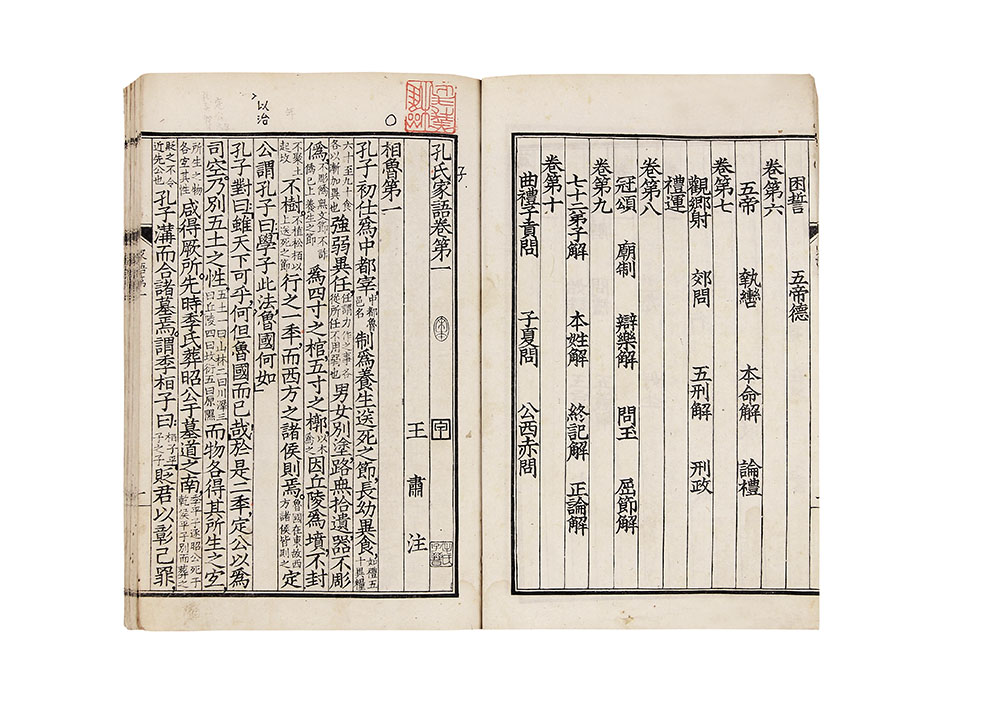 困誓 五帝德
卷第六
五帝 執轡 本命解 論禮
卷第七
觀鄉射 郊問 五刑解 刑政
禮運
卷第八
冠頌 廟制 辯樂解 問玉 屈節解
卷第九
七十二弟子解 本姓解 終記解 正論解
卷第十
曲禮子貢問 子夏問 公西赤問
孔氏家語卷第一
子
王肅注
相魯第一
孔子初仕爲中都宰中都魯邑名制爲養生送死之節，長幼異食，如禮五十異糧
六十至九十食各以漸加異也強弱異任任謂力作之事各從所任不用弱也男女別塗，路無拾遺，器不彫
僞，不彫僞無文飾不詐僞已上養生之節爲四寸之棺，五寸之槨以木爲之因丘陵爲墳，不封
不聚土起坟不樹，不植松柏以上送死之節行之一季，而西方之諸侯則焉。魯國在東故西方諸侯皆則之定
公謂孔子曰：學子此法魯國何如
孔子對曰：雖天下可乎，何但魯國而已哉。於是二季，定公以爲
司空。乃別五土之性，五土一曰山林二曰川澤三曰丘陵四曰坟衍五曰原隰而物各得其所生之宐
所生之物各宐其性咸得厥所。先時，季氏葬昭公于墓道之南，季平子逐昭公死于乾侯平子別而葬之
貶之不令近先公也孔子溝而合諸墓焉。謂季桓子曰：桓子平子之子貶君以彰己罪，
以治